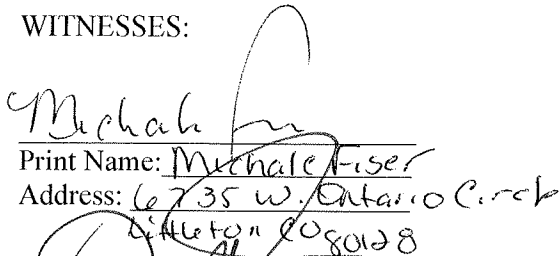 WITNESSES:
Print Name: Michale Fiser
Address: 6735 W. Ontario Circle
Littleton CO 80128